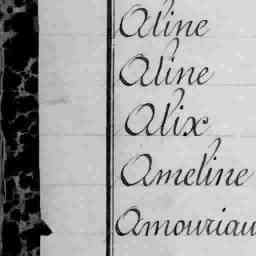 Aline
Aline
Alix
Ameline
Amouriau